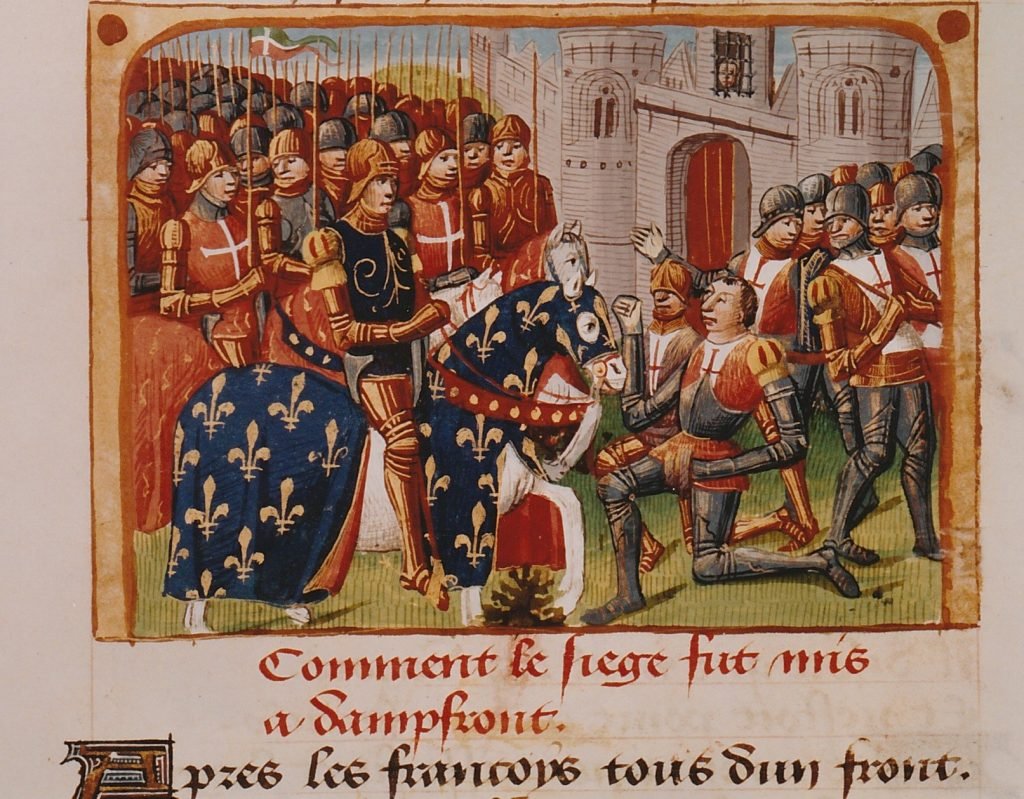 Comment le siege fut mis
a dampfront.
Apres les francoys tous dun front.